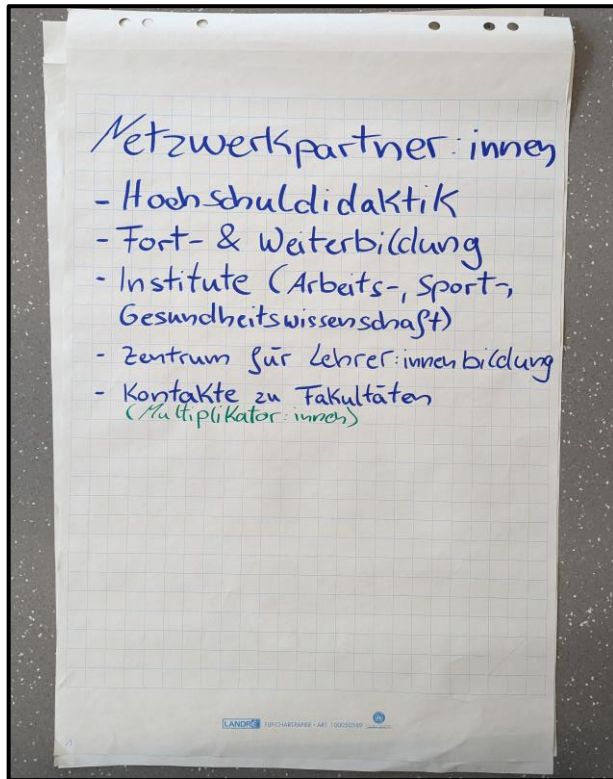 Netzwerkpartner:innen
- Hochschuldidaktik
- Fort- & Weiterbildung
- Institute (Arbeits-, Sport-,
Gesundheitswissenschaft)
- Zentrum für Lehrer:innenbildung
- Kontakte zu Fakultäten
(Multiplikator:innen)
LANDRÉ FLIPCHARTPAPIER • ART. 100050589